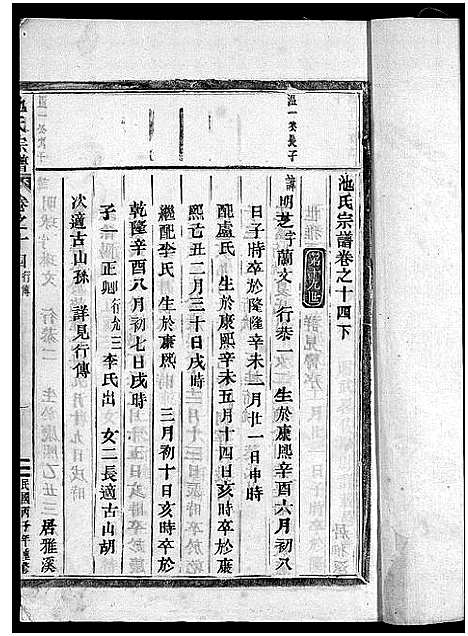 池氏宗譜卷之十四下
第十九世
溫一公長子
諱明芝字蘭文 行恭一 生於康熙辛酉六月初八
日子時卒於隆隆辛未二月廿一日申時
配盧氏 生於康熙辛未五月十四日亥時卒於康
熙己丑二月三十日戌時
繼配李氏 生於康熙 三月初十日亥時卒於
乾隆辛酉八月初七日戌時
子一 正 行允三 李氏出 女二長適古山胡
次適古山孫 詳見行傳
居雅溪
池氏宗譜 卷之十四 行傳
民國丙子年重修